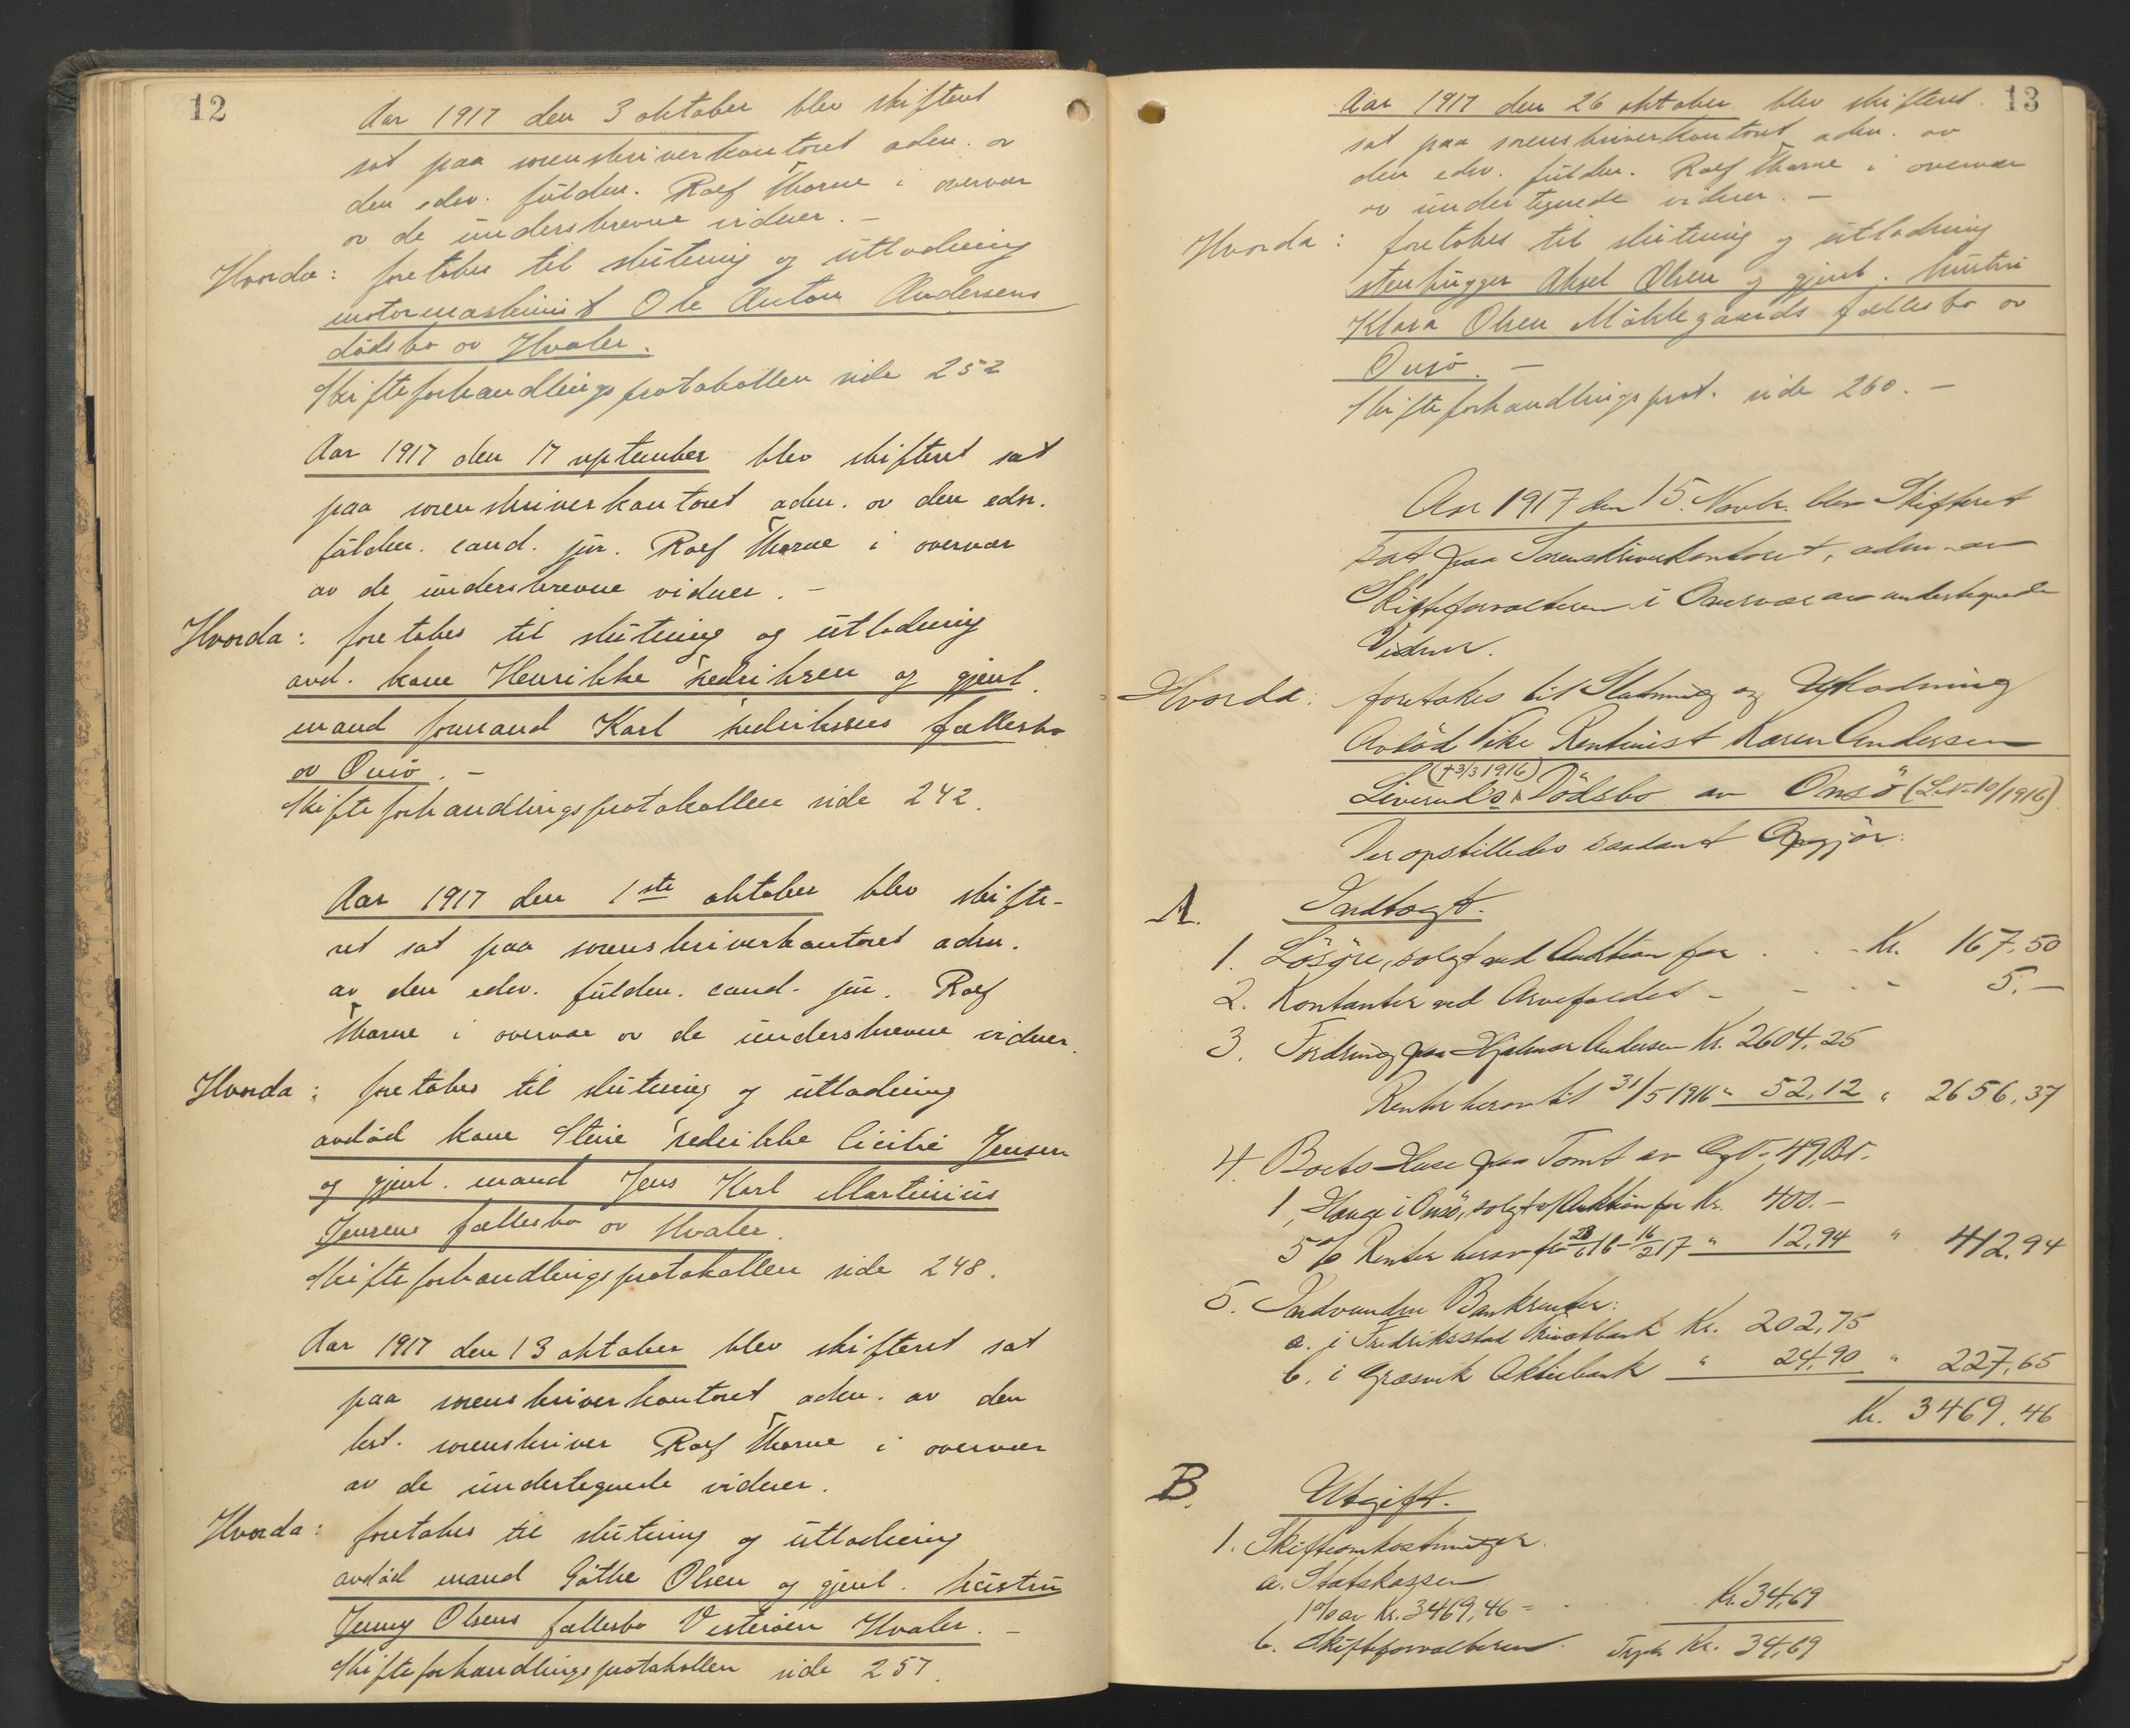 12
Aar 1917 den 3 oktober blev skifteret
sat paa sorenskriverkontoret adm. av
den edsv. fuldm. Rolf Thorne i overvær
av de underskrevne vidner. –
Hvorda: foretokes til slutning og utlodning
motormaskinist Ole Anton Andersens
dødsbo av Hvaler.
Skifteforhandlingsprotokollen side 252
Aar 1917 den 17 september blev skifteret sat
paa sorenskriverkontoret adm. av den edsv.
fuldm. cand. jur. Rolf Thorne i overvær
av de underskrevne vidner. –
Hvorda: foretokes til slutning og utlodning
avd. kone Henrikke Fredriksen og gjenl.
mand formand Karl Fredriksens fællesbo
av Onsö. –
Skifteforhandlingsprotokollen side 242.
Aar 1917 den 1ste oktober blev skifte-
ret sat paa sorenskriverkontoret adm.
av den edsv. fuldm. cand. jur. Rolf
Thorne i overvær av de underskrevne vidner.
Hvorda: foretokes til slutning og utlodning
avdöd kone Stine Fredrikke Cicilie Jensen
og gjenl. mand Jens Karl Martinius
Jensens fællesbo av Hvaler.
Skifteforhandlingsprotokollen side 248.
Aar 1917 den 13 oktober blev skifteret sat
paa sorenskriverkontoret adm. av den
kst. sorenskriver Rolf Thorne i overvær
av de undertegnede vidner.
Hvorda: foretokes til slutning og utlodning
avdöd mand Göthe Olsen og gjenl. hustru
Jenny Olsens fællesbo Vesteröen Hvaler. –
Skifteforhandlingsprotokollen side 257.
13
Aar 1917 den 26 oktober blev skifteret
sat paa sorenskriverkontoret adm. av
den edsv. fuldm. Rolf Thorne i overvær
av undertegnede vidner. –
Hvorda: foretokes til slutning og utlodning
stenhugger Aksel Olsen og gjenl. hustru
Klara Olsen Möklegaards fællesbo av
Onsö. –
Skifteforhandlingsprot. side 260. –
Aar 1917 den 15. Novbr. blev Skifteret
sat paa Sorenskriverkontoret, adm. av
Skifteforvalteren i Overvær av undertegnede
Vidner.
Hvorda: foretokes til Slutning og Utlodning
Avdöd Pike Rentenist Karen Andersen
(† 3/3 1916)
Dödsbo av Onsö (L.N. 10/1916).
Der opstilledes saadant Opgjör:
A. Indtægt.
1. Lösöre, solgt ved Auktion for . . - Kr. 167.50
2. Kontanter ved Arvefaldet - - - - 5.–
3. Fordring paa Hjalmar Andersen Kr. 2604,25
Renter herav til 31/5 1916 " 52,12 " 2656,37
4. Boets Huse paa Tomt av Gr. 49, Br.
1, Hauge i Onsö, solgt v/Auktion for Kr. 400.–
5 % Renter herav fra 28/6 16 - 16/2 17 " 12,94 " 412.94
5. Indvundne Bankrenter:
a. i Fredriksstad Privatbank Kr. 202,75
b. i Græsvik Aktiebank " 24,90 " 227,65
Kr. 3469,46
B. Utgift.
1. Skifteomkostninger.
a. Statskassen
1% av Kr. 3469,46 = . . . Kr. 34,69
b. Skifteforvalteren. Kr. 34,69